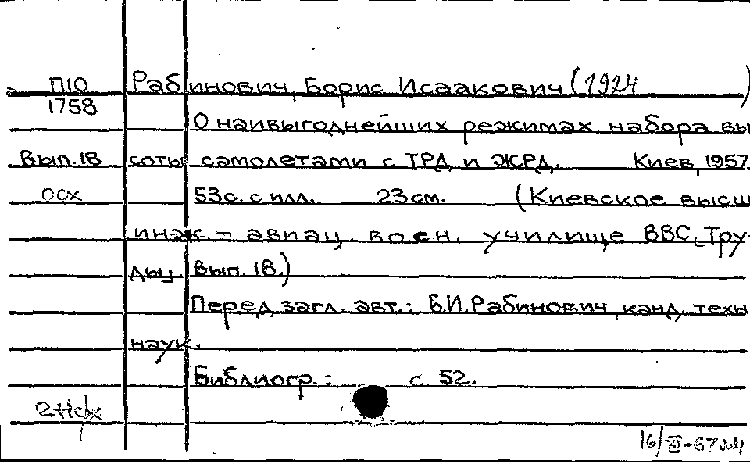 П10 Рабинович, Борис Исаакович (1924 )
1758
О наивыгоднейших режимах набора вы
Вып. 18 соты самолетами с ТРД и ЖРД. Киев, 1957.
осх 53с. с илл. 23см. (Киевское высш
инж - авиац. воен. училище ВВС, Тру-
ды, Вып. 18.)
Перед загл. авт.: Б.И. Рабинович, канд. техн
наук.
Библиогр.: с. 52.